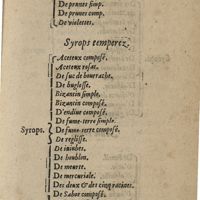 De prunes simp.
De prunes comp.
De violettes.
Syrops temperez.
Aceteux composé.
Aceteux rosat.
De suc de bourrache.
De buglosse.
Bizantin simple.
Bizantin composé.
D'endive composé.
De fume-terre simple.
Syrops. De fume-terre composé.
De reglisse.
De iuiubes.
De houblon.
De meurte.
De mercuriale.
Des deux & des cinq racines.
De Sabor composé.